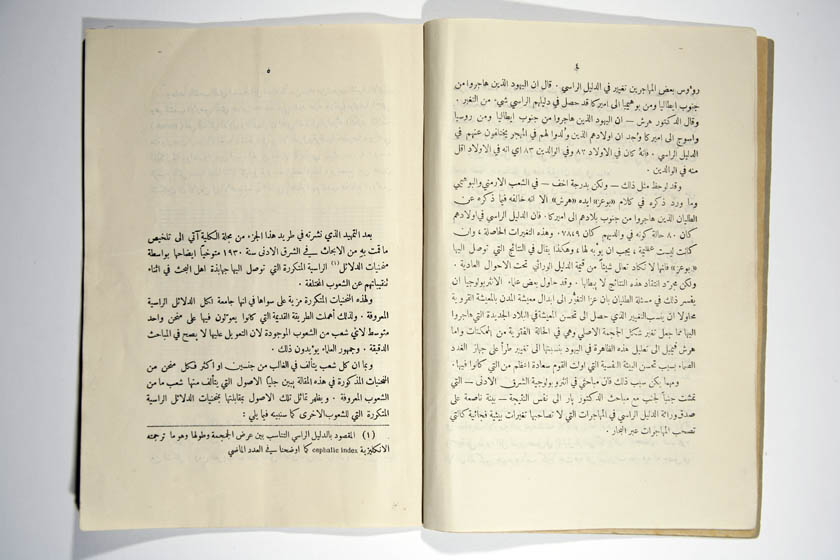 ٤
رؤوس بعض المهاجرين تغيير في الدليل الراسي . قال ان اليهود الذين هاجروا من
جنوب ايطاليا ومن بوهيميا الى اميركا قد حصل في دليلهم الراسي شيء من التغير .
وقال الدكتور هرش — ان اليهود الذين هاجروا من جنوب ايطاليا ومن روسيا
واسوج الى اميركا وُجد ان اولادهم الذين وُلدوا لهم في المهجر يختلفون عنهم في
الدليل الراسي . فانهُ كان في الاولاد ٨٢ وفي الوالدين ٨٣ اي انه في الاولاد اقل
منه في الوالدين .
وقد لوحظ مثل ذلك — ولكن بدرجة اخف — في الشعب الارمني والبوهيمي
وما ورد ذكره في كلام «بوعز» ايده «هرش» الا انه خالفه فيما ذكره عن
الطليان الذين هاجروا من جنوب بلادهم الى اميركا . فان الدليل الراسي في اولادهم
كان ٨٠ حالة كونه في والديهم كان ٧٨٤٩ . وهذه التغيرات الحاصلة وان
كانت ليست عظيمة يجب ان يؤبه لها وهكذا يقال في النتائج التي توصل اليها
«بوعز» فانها لا تكاد تعلل شيئاً من قيمة الدليل الوراثي تحت الاحوال العادية .
ولكن مجرّد انتقاد هذه النتائج لا يبطلها . وقد حاول بعض علماء الانثربولوجيا ان
يفسر ذلك في مسئلة الطليان بان عزا التغيُّر الى ابدال معيشة المدن بالمعيشة القروية
محاولا ان ينسب التغيير الذي حصل الى تحسّن المعيشة في البلاد الجديدة التي هاجروا
اليها مما جعل تغير شكل الجمجمة الاصلي وهي في الحالة الفقرية من الممكنات واما
هرش فيميل الى تعليل هذه الظاهرة في اليهود بنسبتها الى تغيير طرأ على جهاز الغدد
الصماء بسبب تحسن البيئة النفسية التي اولت القوم سعادة اعظم من التي كانوا فيها .
ومهما يكن سبب ذلك فان مباحثي في انثروبولوجية الشرق الادنى — التي
تمشت جنباً لجنب مع مباحث الدكتور بار الى نفس النتيجة — بيئة ناصعة على
صدق وراثة الدليل الراسي في المهاجرات التي لا تصاحبها تغيرات بيئية فجائية كالتي
تصحب المهاجرات عبر البحار .
٥
بعد التمهيد الذي نشرته في طريد هذا الجزء من مجلة الكلية آتي الى تلخيص
ما قمت به من الابحاث في الشرق الادنى سنة ١٩٣٠ متوخياً ايضاحها بواسطة
منحنيات الدلائل (١) الراسية المتكررة التي توصل اليها جهابذة اهل البحث في اثناء
تنقيباتهم عن الشعوب المختلفة .
ولهذه المنحنيات المتكررة مزية على سواها في انها جامعة لكل الدلائل الراسية
المعروفة . ولذلك أهملت الطريقة القديمة التي كانوا يعوّلون فيها على منحن واحد
متوسط لايّ شعب من الشعوب الموجودة لان التعويل عليها لا يصح في المباحث
الدقيقة . وجمهور العلماء يؤيدون ذلك .
وبما ان كل شعب يتألف في الغالب من جنسين او اكثر فكل منحن من
المنحنيات المذكورة في هذه المقالة يبين جلياً الاصول التي يتألف منها شعب ما من
الشعوب المعروفة . ويظهر تماثل تلك الاصول بمقابلتها بمنحنيات الدلائل الراسية
المتكررة التي للشعوب الاخرى كما سنبينه فيما يلي :
(١) المقصود بالدليل الراسي التناسب بين عرض الجمجمة وطولها وهو ما ترجمته
الانكليزية cephalic index كما اوضحنا في العدد الماضي